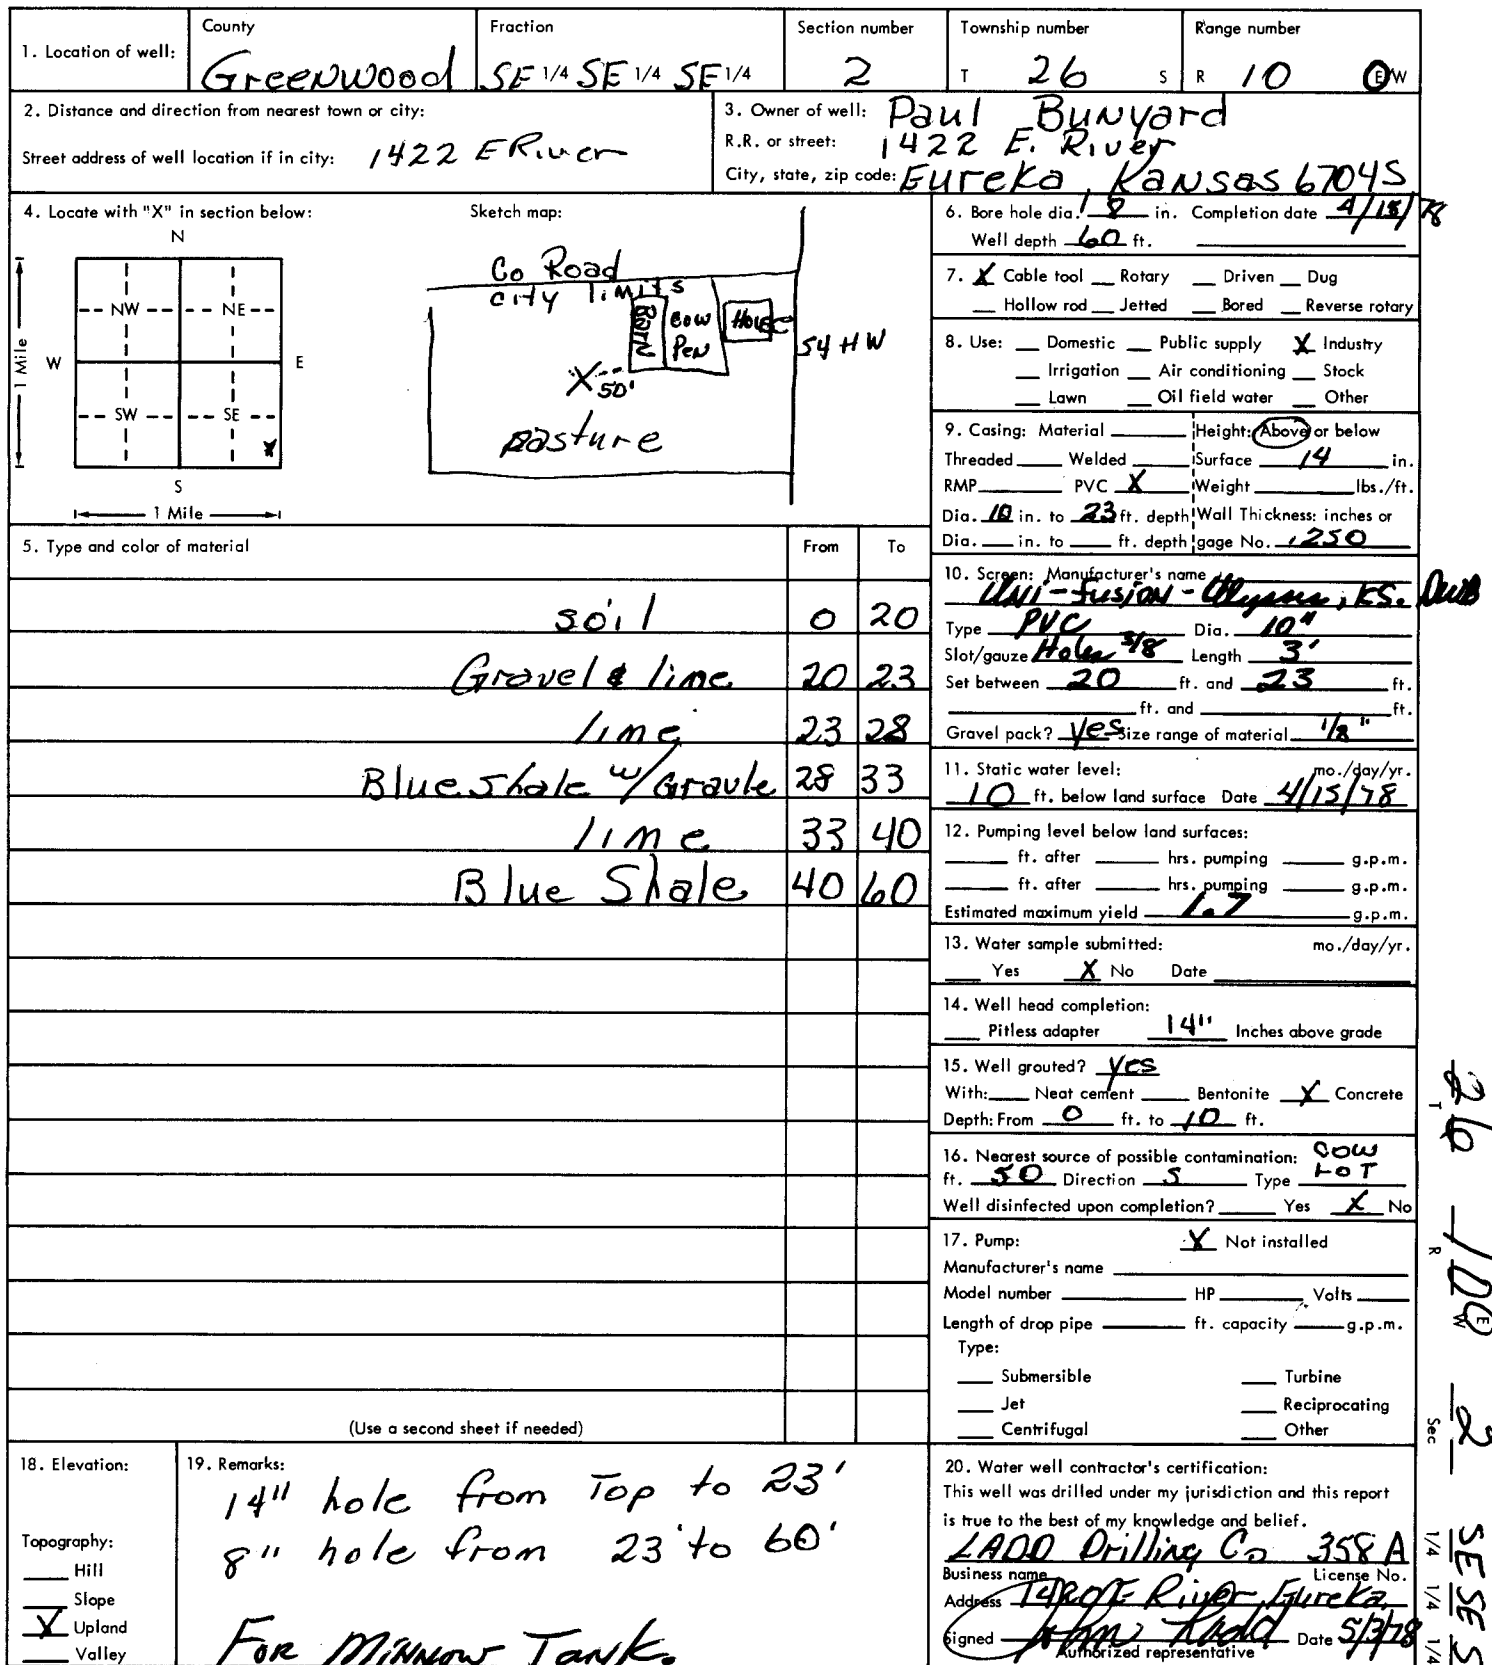 County Fraction Section number Township number Range number
1. Location of well: Greenwood SE 1/4 SE 1/4 SE 1/4 2 T 26 S R 10 E/W
2. Distance and direction from nearest town or city:
Street address of well location if in city: 1422 E River
3. Owner of well: Paul Bunyard
R.R. or street: 1422 E. River
City, state, zip code: Eureka, Kansas 67045
4. Locate with "X" in section below:
N
NW NE
W E
SW SE
X
S
1 Mile
1 Mile
Sketch map:
Co Road
city limits
Barn
cow Pen
House
54 HW
X 50'
pasture
6. Bore hole dia. 8 in. Completion date 4/15/78
Well depth 60 ft.
7. X Cable tool Rotary Driven Dug
Hollow rod Jetted Bored Reverse rotary
8. Use: Domestic Public supply X Industry
Irrigation Air conditioning Stock
Lawn Oil field water Other
9. Casing: Material Height: Above or below
Threaded Welded Surface 14 in.
RMP PVC X Weight lbs./ft.
Dia. 10 in. to 23 ft. depth Wall Thickness: inches or
Dia. in. to ft. depth gage No. .250
5. Type and color of material From To
soil 0 20
Gravel & lime 20 23
lime 23 28
Blue shale w/ Gravle 28 33
lime 33 40
Blue Shale 40 60
(Use a second sheet if needed)
10. Screen: Manufacturer's name
Uni-fusion - Ulysses, KS. DWB
Type PVC Dia. 10"
Slot/gauze Holes 3/8 Length 3'
Set between 20 ft. and 23 ft.
ft. and ft.
Gravel pack? yes Size range of material 1/8"
11. Static water level: mo./day/yr.
10 ft. below land surface Date 4/15/78
12. Pumping level below land surfaces:
ft. after hrs. pumping g.p.m.
ft. after hrs. pumping g.p.m.
Estimated maximum yield 1.7 g.p.m.
13. Water sample submitted: mo./day/yr.
Yes X No Date
14. Well head completion:
Pitless adapter 14" Inches above grade
15. Well grouted? yes
With: Neat cement Bentonite X Concrete
Depth: From 0 ft. to 10 ft.
16. Nearest source of possible contamination: COW
ft. 50 Direction S Type LOT
Well disinfected upon completion? Yes X No
17. Pump: X Not installed
Manufacturer's name
Model number HP Volts
Length of drop pipe ft. capacity g.p.m.
Type:
Submersible Turbine
Jet Reciprocating
Centrifugal Other
18. Elevation:
Topography:
Hill
Slope
X Upland
Valley
19. Remarks:
14" hole from Top to 23'
8" hole from 23' to 60'
For Minnow Tank.
20. Water well contractor's certification:
This well was drilled under my jurisdiction and this report
is true to the best of my knowledge and belief.
LADD Drilling Co 358 A
Business name License No.
Address 1420 E River, Eureka,
Signed John Ladd Date 5/3/78
Authorized representative
T 26 R 10 E W Sec 2 1/4 1/4 1/4 SE SE S